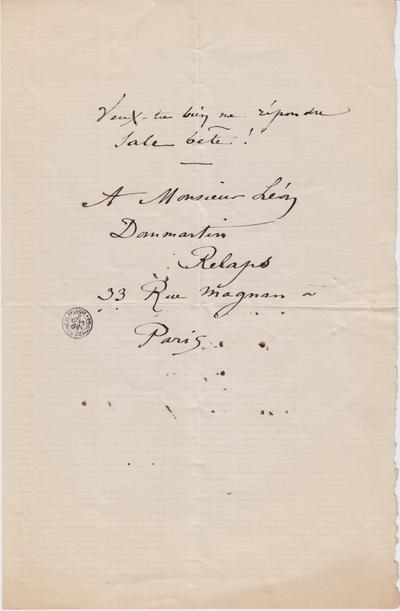 Veux-tu bien me répondre
Sale bête!
A Monsieur Léon
Dommartin
Relaps
33 Rue Magnan à
Paris